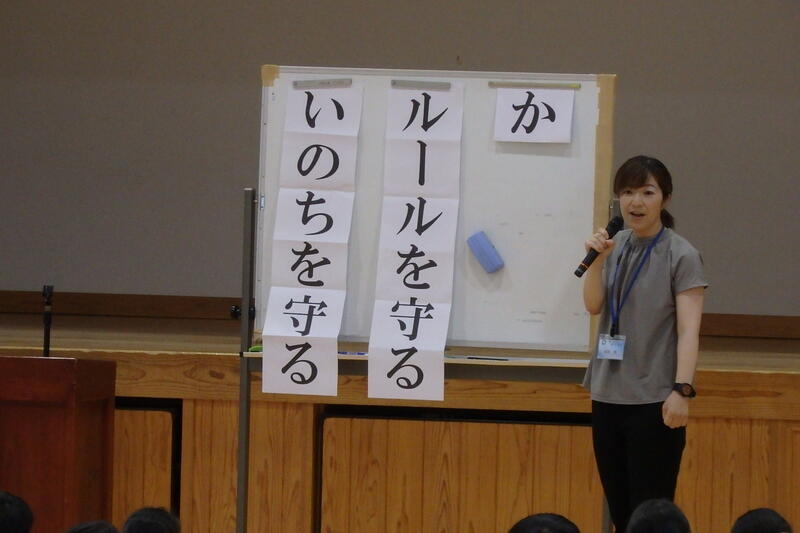 か
ルールを守る
いのちを守る